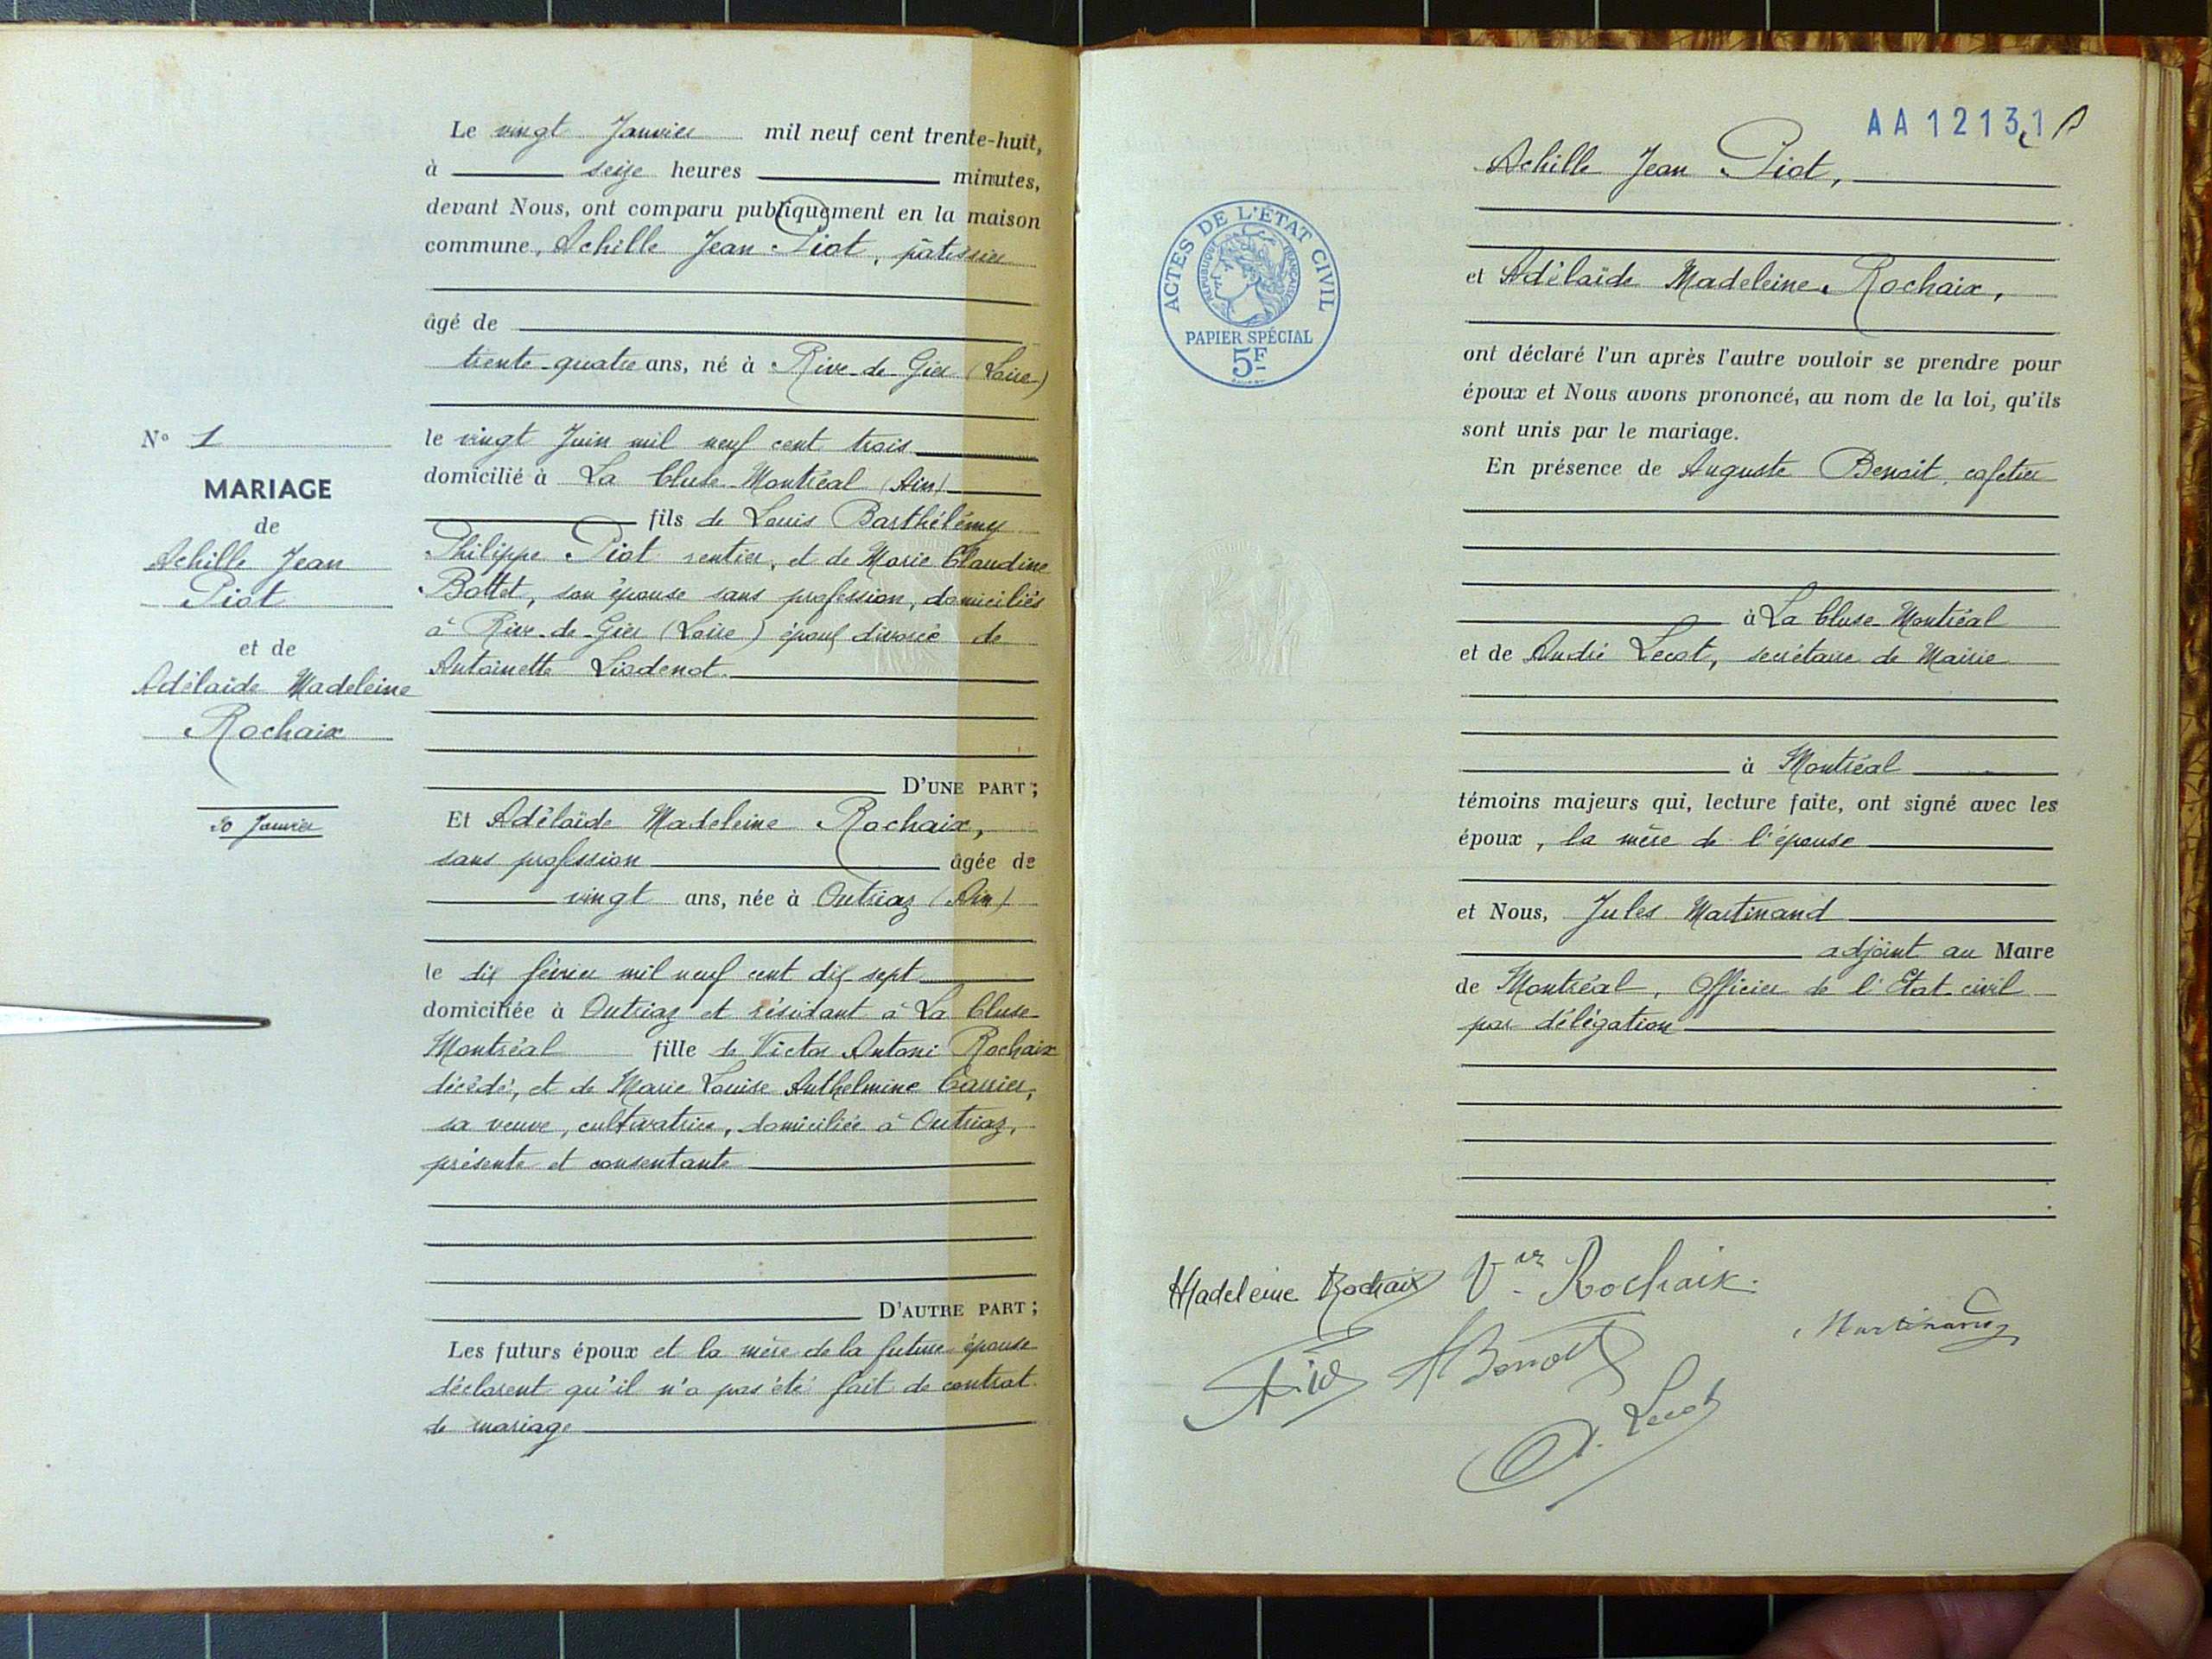 Le vingt Janvier mil neuf cent trente-huit,
à seize heures minutes,
devant Nous, ont comparu publiquement en la maison
commune, Achille Jean Piot, pâtissier
âgé de
trente-quatre ans, né à Rive-de-Gier (Loire)
le vingt Juin mil neuf cent trois
domicilié à La Cluse-Montréal (Ain)
fils de Louis Barthélémy
Philippe Piot rentier, et de Marie Claudine
Bottet, son épouse sans profession, domiciliés
à Rive-de-Gier (Loire) époux divorcé de
Antoinette Liodenot.
D'UNE PART;
Et Adélaïde Madeleine Rochaix,
sans profession âgée de
vingt ans, née à Outriaz (Ain)
le dix février mil neuf cent dix-sept
domiciliée à Outriaz et résidant à La Cluse-
Montréal fille de Victor Antoni Rochaix
décédé, et de Marie Louise Anthelmine Carrier,
sa veuve, cultivatrice, domiciliée à Outriaz,
présente et consentante
D'AUTRE PART;
Les futurs époux et la mère de la future épouse
déclarent qu'il n'a pas été fait de contrat
de mariage
N° 1
MARIAGE
de
Achille Jean
Piot
et de
Adélaïde Madeleine
Rochaix
20 Janvier
AA12131
Achille Jean Piot,
et Adélaïde Madeleine Rochaix,
ont déclaré l'un après l'autre vouloir se prendre pour
époux et Nous avons prononcé, au nom de la loi, qu'ils
sont unis par le mariage.
En présence de Auguste Benoit, cafetier
à La Cluse-Montréal
et de André Lecot, secrétaire de Mairie
à Montréal
témoins majeurs qui, lecture faite, ont signé avec les
époux, la mère de l'épouse
et Nous, Jules Martinand
adjoint au Maire
de Montréal, Officier de l'Etat-civil
par délégation
ACTES DE L'ÉTAT CIVIL
RÉPUBLIQUE FRANÇAISE
PAPIER SPÉCIAL
5F
Madeleine Rochaix Vve Rochaix.
Piot ABenoit Martinand
A. Lecot